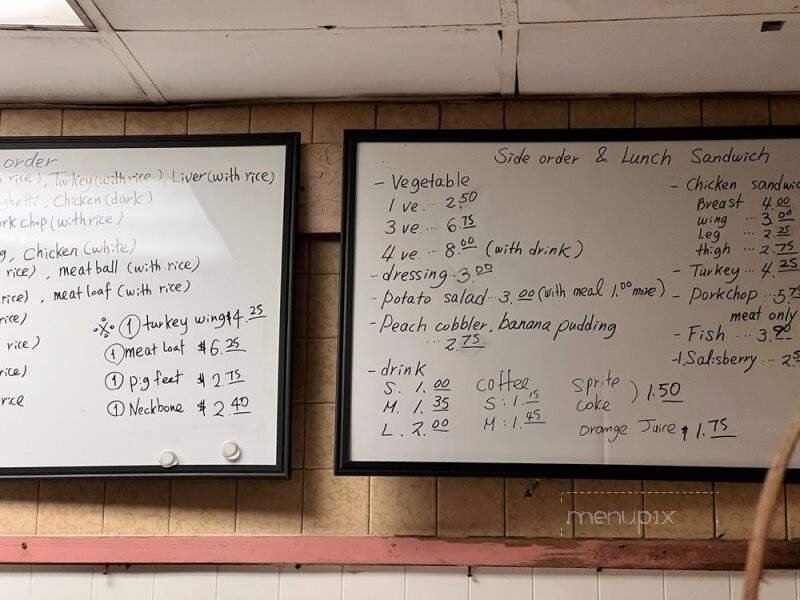 order
rice), Turkey (with rice), Liver (with rice)
Chicken (dark)
chop (with rice)
Chicken (white)
rice), meat ball (with rice)
rice), meat loaf (with rice)
rice)
① turkey wing $4.25
rice)
① meat loaf $6.25
rice)
① pig feet $2.75
rice
① Neckbone $2.40
Side order & Lunch Sandwich
- Vegetable
1 ve... 2.50
3 ve. 6.75
4 ve... 8.00 (with drink)
- dressing... 3.00
- potato salad... 3.00 (with meal 1.00 more)
- Peach cobbler, banana pudding
... 2.75
- drink
S. 1.00
M. 1.35
L. 2.00
coffee
S: 1.15
M: 1.45
Sprite
coke
) 1.50
orange Juice $1.75
- Chicken
Breast 4.00
wing ... 3.00
Leg ... 2.25
thigh ... 2.75
- Turkey... 4.25
- Porkchop
meat only
- Fish ... 3.90
Salisberry ...
menupix